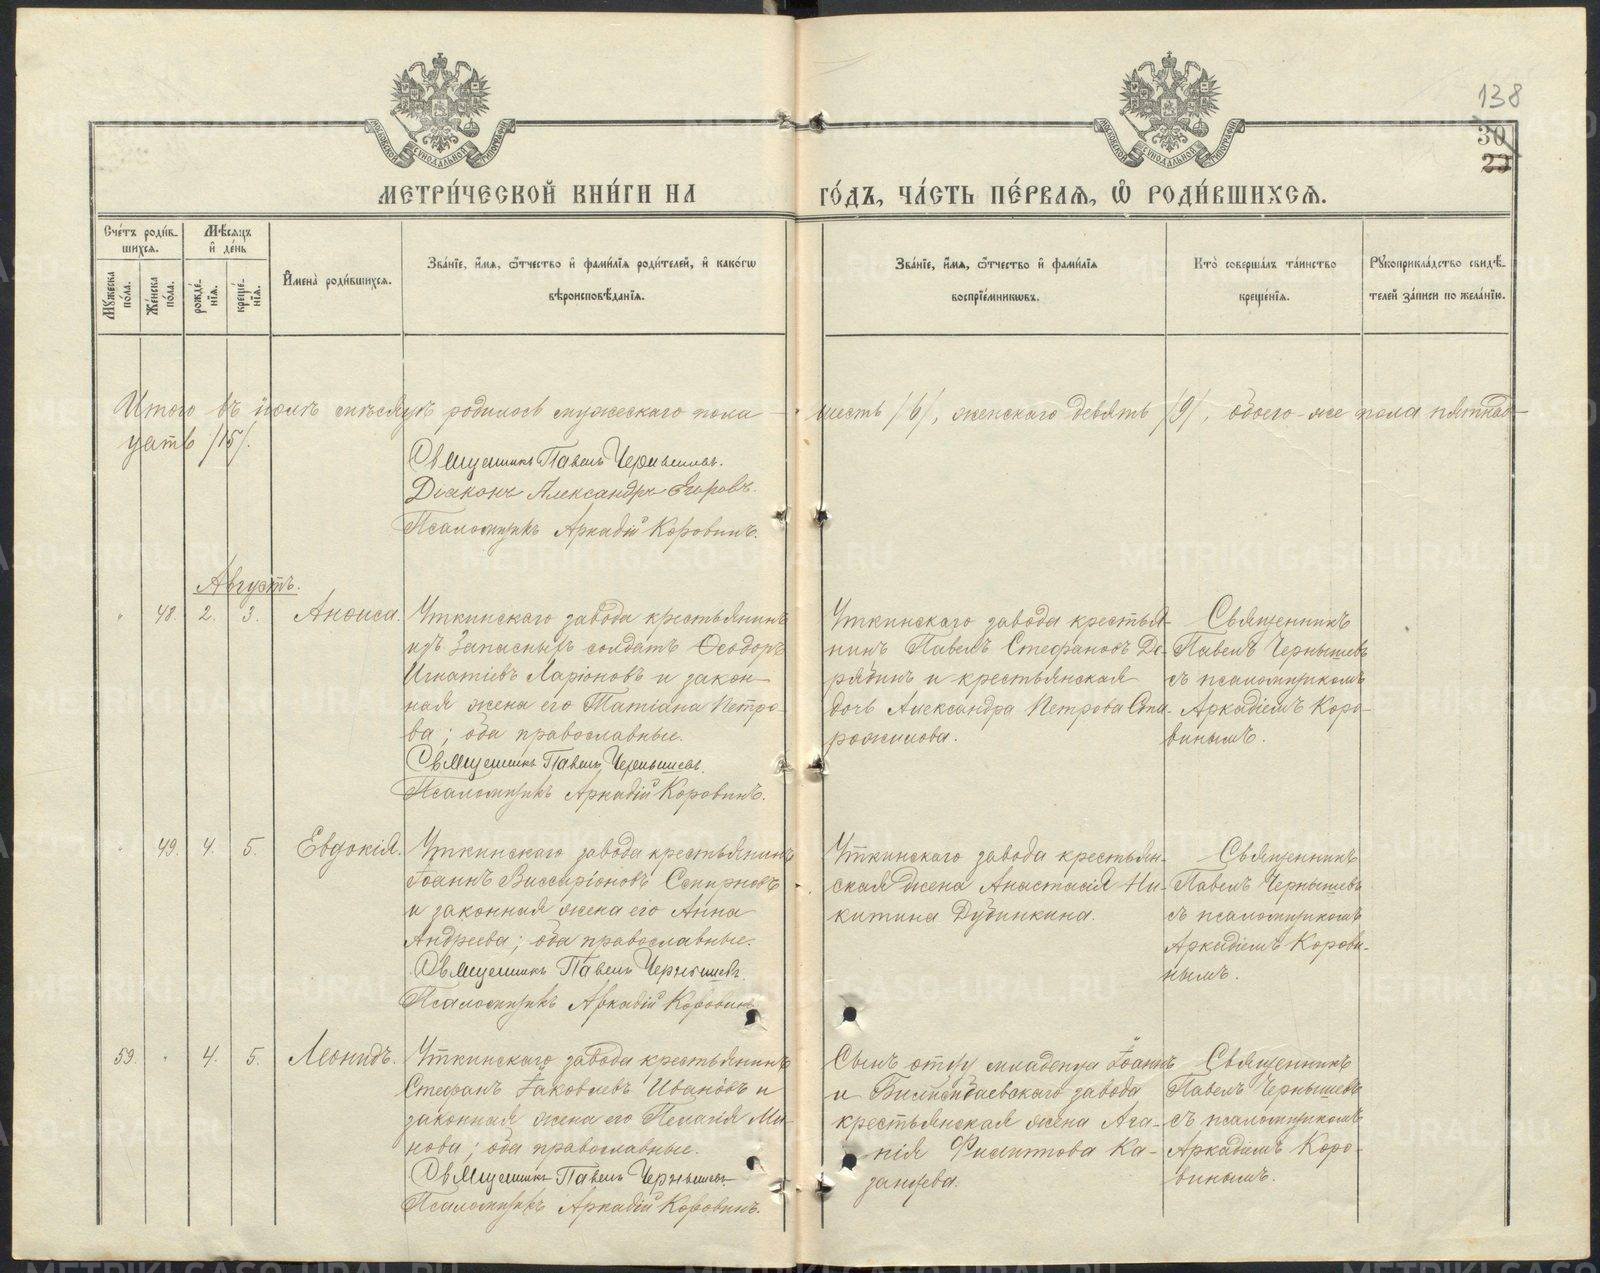 138
30
23
МЕТРИ́ЧЕСКОЙ КНИ́ГИ НА ГО́ДЪ, ЧА́СТЬ ПЕ́РВАЯ, Ѿ РОДИ́ВШИХСЯ.
Сче́тъ роди́в-
шихся.
Мѣ́сяцъ
и де́нь
Му́жеска по́ла.
Же́нска по́ла.
рожде́-
нія.
креще́-
нія.
Имена̀ роди́вшихся.
Зва́ніе, и́мя, о́тчество и фами́лія роди́телей, и како́гѡ
вѣроисповѣ́данія.
Зва́ніе, и́мя, о́тчество и фами́лія
воспріе́мниковъ.
Кто̀ соверша́лъ та́инство
креще́нія.
Рукоприкла́дство свидѣ́-
телей за́писи по жела́нію.
Итого въ іюлѣ мѣсяцѣ родилось мужескаго пола — шесть /6/, женскаго девять /9/, обоего-же пола пятнад-
цать /15/.
Священникъ Павелъ Чернышевъ.
Діаконъ Александръ Егоровъ.
Псаломщикъ Аркадій Коровинъ.
Августъ.
" 48. 2. 3. Анѳиса.
Уткинскаго завода крестьянинъ
изъ запасныхъ солдатъ Ѳеодоръ
Игнатіевъ Ларіоновъ и закон-
ная жена его Татіана Петро-
ва; оба православные.
Священникъ Павелъ Чернышевъ.
Псаломщикъ Аркадій Коровинъ.
Уткинскаго завода крестья-
нинъ Павелъ Стефановъ Де-
рябинъ и крестьянская
дочь Александра Петрова Ста-
рожилова.
Священникъ
Павелъ Чернышевъ
съ псаломщикомъ
Аркадіемъ Коро-
винымъ.
" 49. 4. 5. Евдокія.
Уткинскаго завода крестьянинъ
Іоаннъ Виссаріоновъ Смирновъ
и законная жена его Анна
Андреева; оба православные.
Священникъ Павелъ Чернышевъ.
Псаломщикъ Аркадій Коровинъ.
Уткинскаго завода крестьян-
ская жена Анастасія Ни-
китина Дубинкина.
Священникъ
Павелъ Чернышевъ
съ псаломщикомъ
Аркадіемъ Корови-
нымъ.
59. " 4. 5. Леонидъ.
Уткинскаго завода крестьянинъ
Стефанъ Іаковлевъ Ивановъ и
законная жена его Пелагія Ми-
нова; оба православные.
Священникъ Павелъ Чернышевъ.
Псаломщикъ Аркадій Коровинъ.
Сынъ отцу младенца Іоаннъ
и Билимбаевскаго завода
крестьянская жена Ага-
нія Филиппова Ка-
занцева.
Священникъ
Павелъ Чернышевъ
съ псаломщикомъ
Аркадіемъ Коро-
винымъ.
METRIKI.GASO-URAL.RU